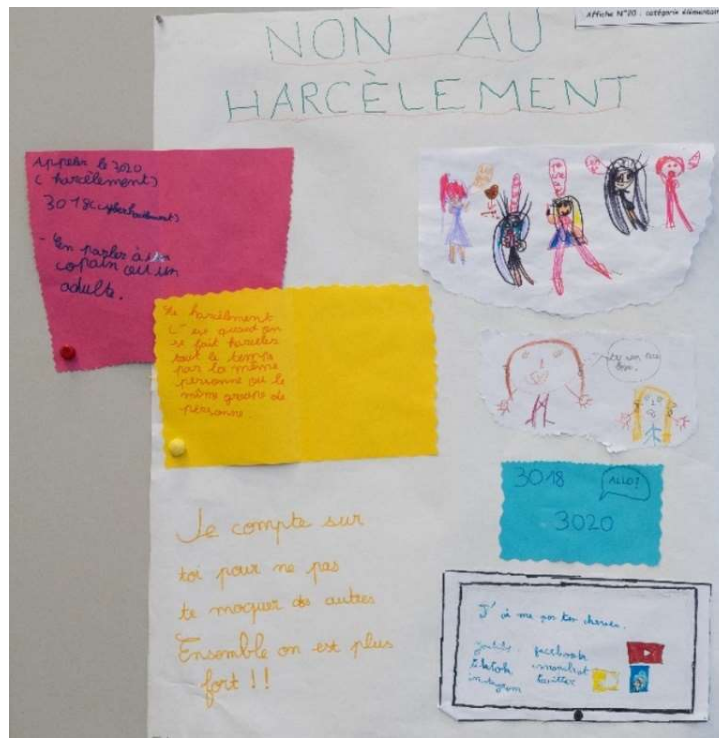 Affiche N°20 : catégorie élémentaire
NON AU
HARCÈLEMENT
Appeler le 3020
( harcèlement)
3018(cyberharcèlement)
- En parler à un
copain ou un
adulte.
Le harcèlement
c'est quand on
se fait harceler
tout le temps
par la même
personne ou le
même groupe de
personne
bon.
3018
ALLO!
3020
Je compte sur
toi pour ne pas
te moquer des autres
Ensemble on est plus
fort !!
J'ai me pas tes cheveu.
youtube facebook
tiktok
instagram twitter